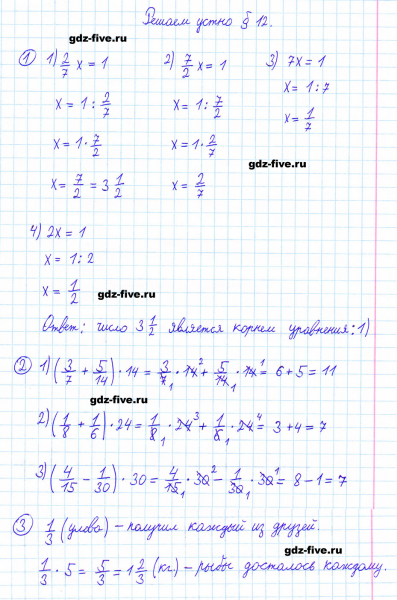 Решаем устно § 12.
gdz-five.ru
① 1) 2/7 x = 1 2) 7/2 x = 1 3) 7x = 1
x = 1 : 2/7 x = 1 : 7/2 x = 1 : 7
x = 1 · 7/2 x = 1 · 2/7 x = 1/7
gdz-five.ru
x = 7/2 = 3 1/2 x = 2/7
4) 2x = 1
x = 1 : 2
x = 1/2 gdz-five.ru
Ответ: число 3 1/2 является корнем уравнения: 1)
② 1) (3/7 + 5/14) · 14 = 3/7₁ · 14² + 5/14₁ · 14¹ = 6 + 5 = 11
gdz-five.ru
2) (1/8 + 1/6) · 24 = 1/8₁ · 24³ + 1/6₁ · 24⁴ = 3 + 4 = 7
3) (4/15 − 1/30) · 30 = 4/15₁ · 30² − 1/30₁ · 30¹ = 8 − 1 = 7
③ 1/3 (улова) – получил каждый из друзей.
gdz-five.ru
1/3 · 5 = 5/3 = 1 2/3 (кг) – рыбы досталось каждому.